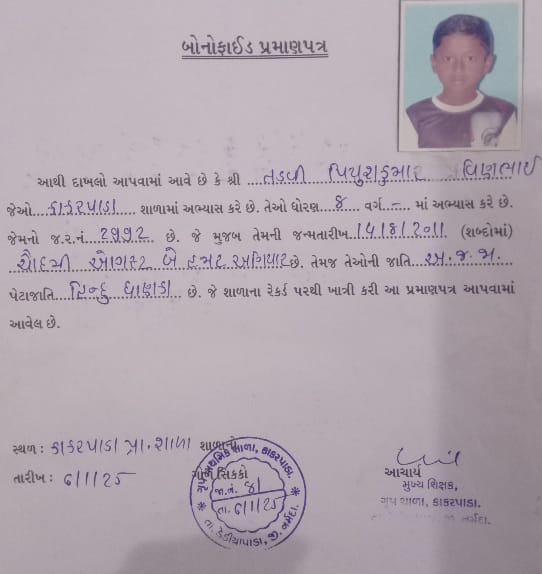 બોનોફાઈડ પ્રમાણપત્ર
આથી દાખલો આપવામાં આવે છે કે શ્રી ....તડવી પિયુશકુમાર વિણભાઈ
જેઓ...કાકરપાડા...... શાળામાં અભ્યાસ કરે છે. તેઓ ધોરણ...૪... વર્ગ..–.... માં અભ્યાસ કરે છે.
જેમનો જ.ર.નં..૨૭૧૨.... છે. જે મુજબ તેમની જન્મતારીખ.14/8/2011. (શબ્દોમાં)
ચૌદમી ઓગસ્ટ બે હજાર અગિયાર છે. તેમજ તેઓની જાતિ ...અ.જ.જા.
પેટાજાતિ...હિન્દુ ધાણકા... છે. જે શાળાના રેકર્ડ પરથી ખાત્રી કરી આ પ્રમાણપત્ર આપવામાં
આવેલ છે.
સ્થળ : કાકરપાડા પ્રા.શાળા શાળાનો
તારીખ : 6/1/25
ગોળ સિક્કો
ગૃપ પ્રાથમિક શાળા, કાકરપાડા.
જા.નં. 41
તા. 6/1/25
તા. ડેડીયાપાડા, જી. નર્મદા.
આચાર્ય
મુખ્ય શિક્ષક,
ગૃપ શાળા, કાકરપાડા.
જી. નર્મદા.